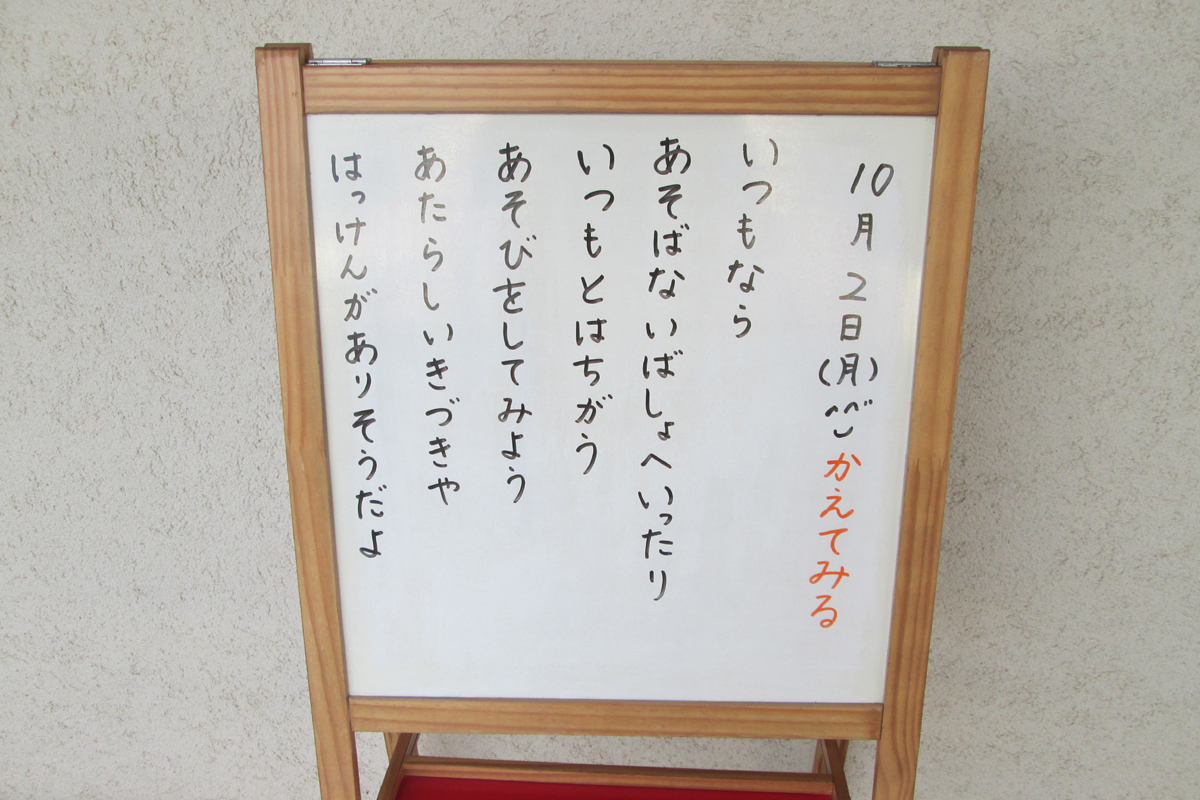 10月2日(月)^^かえてみる
いつもなら
あそばないばしょへいったり
いつもとはちがう
あそびをしてみよう
あたらしいきづきや
はっけんがありそうだよ